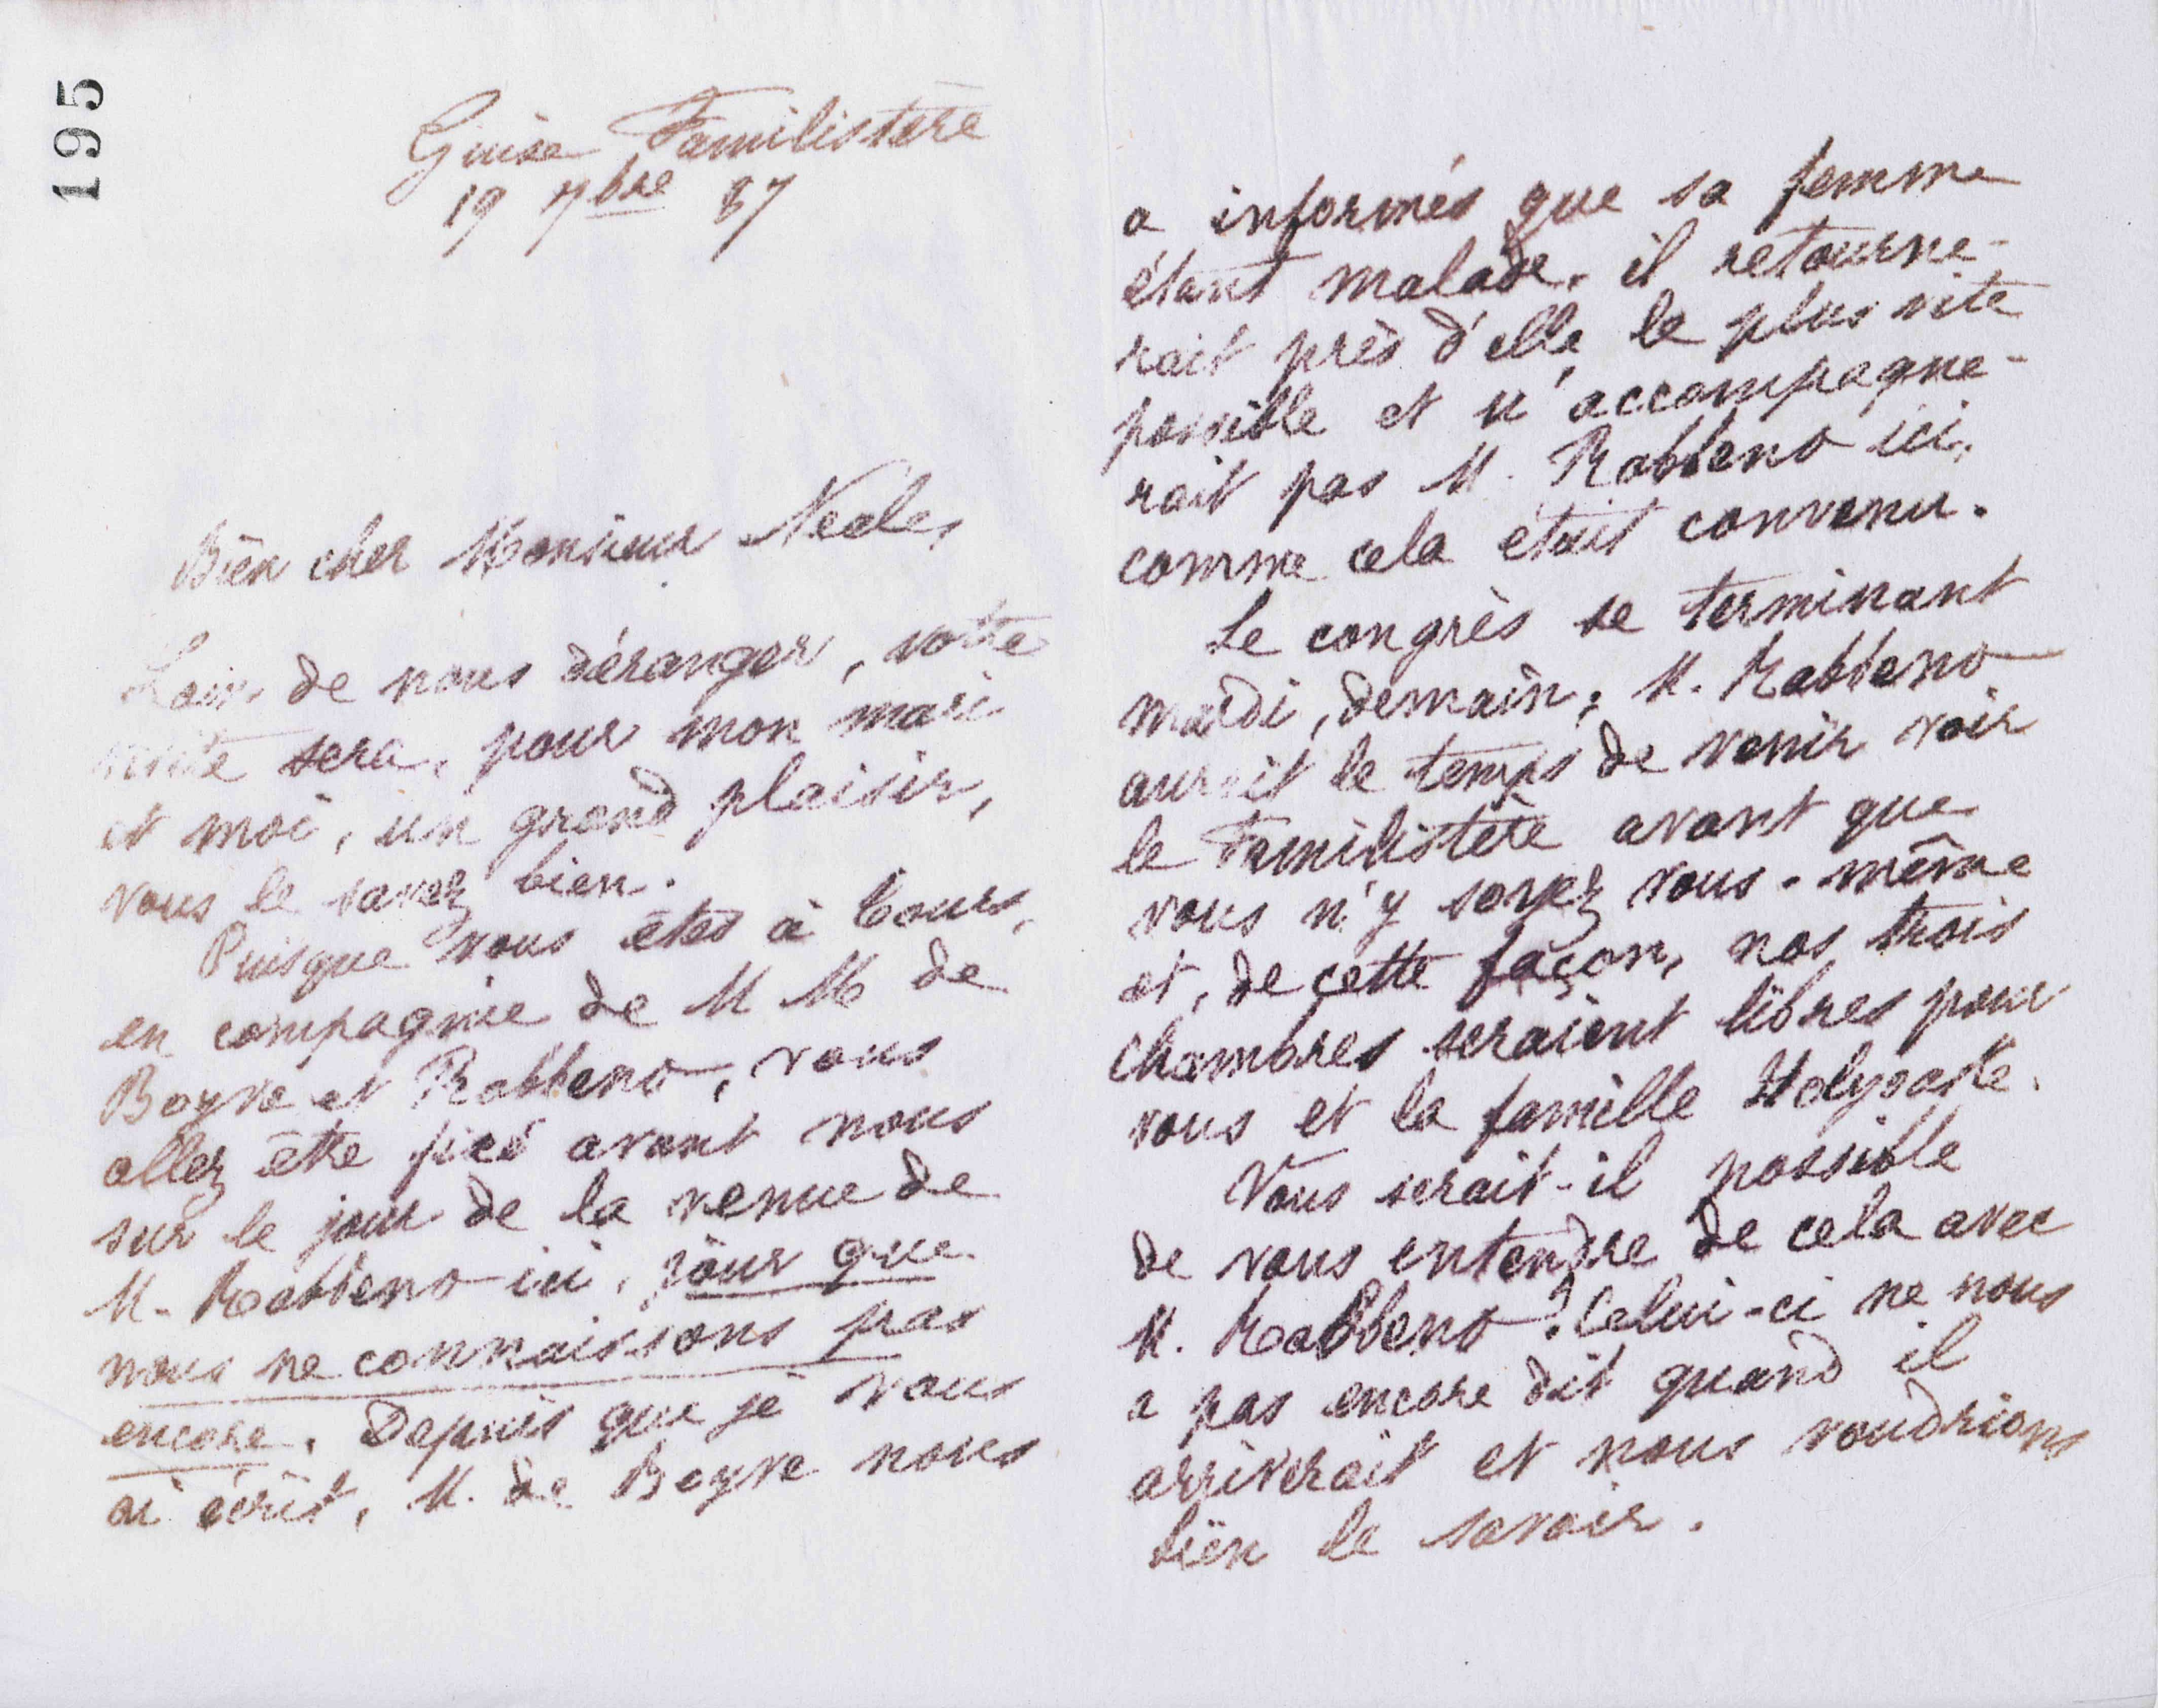 195
Guise Familistère
19 7bre 87
Bien cher Monsieur Neale,
Loin de nous déranger, votre
visite sera, pour mon mari
et moi, un grand plaisir,
vous le savez bien.
Puisque vous êtes à Tours,
en compagnie de M M de
Boyve et Rabbeno, vous
allez être fixé avant nous
sur le jour de la venue de
M. Rabbeno ici, jour que
nous ne connaissons pas
encore. Depuis que je vous
ai écrit, M. de Boyve nous
a informés que sa femme
étant malade, il retourne-
rait près d'elle le plus vite
possible et n'accompagne-
rait pas M. Rabbeno ici,
comme cela était convenu.
Le congrès se terminant
mardi, demain, M. Rabbeno
aurait le temps de venir voir
le Familistère avant que
vous n'y soyez vous-même
et, de cette façon, nos trois
chambres seraient libres pour
vous et la famille Holyoake.
Vous serait-il possible
de vous entendre de cela avec
M. Rabbeno? Celui-ci ne nous
a pas encore dit quand il
arriverait et nous voudrions
bien le savoir.